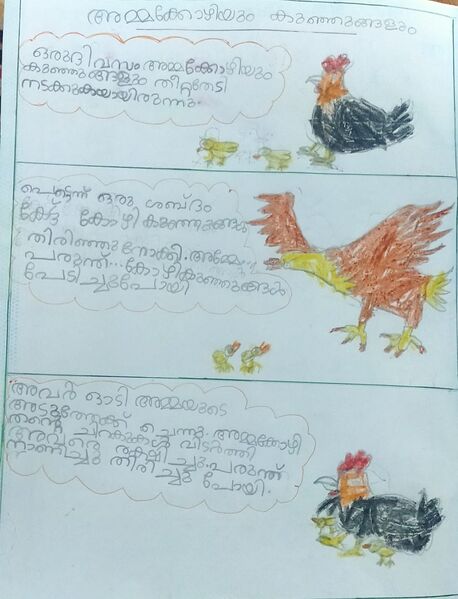 അമ്മക്കോഴിയും കുഞ്ഞുങ്ങളും
ഒരുദിവസം അമ്മക്കോഴിയും
കുഞ്ഞുങ്ങളും തീറ്റതേടി
നടക്കുകയായിരുന്നു.
പെട്ടെന്ന് ഒരു ശബ്ദം
കേട്ട് കോഴികുഞ്ഞുങ്ങൾ
തിരിഞ്ഞുനോക്കി. അമ്മേ...
പരുന്ത്... കോഴികുഞ്ഞുങ്ങൾ
പേടിച്ചുപോയി
അവർ ഓടി അമ്മയുടെ
അടുത്തേക്ക് ചെന്നു. അമ്മക്കോഴി
തന്റെ ചിറകുകൾ വിടർത്തി
അവരെ രക്ഷിച്ചു. പരുന്ത്
നാണിച്ചു തിരിച്ചു പോയി.